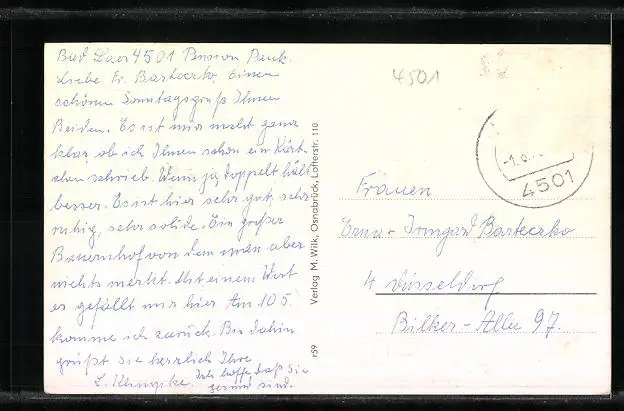 Bad Laer 4501 Pension Pauk.
Liebe Fr. Barteczko, Einen
schönen Sonntagsgruß Ihnen
Beiden. Es ist mir nicht ganz
klar, ob ich Ihnen schon ein Kärt-
chen schrieb. Wenn ja, doppelt hält
besser. Es ist hier sehr gut, sehr
ruhig, sehr solide. Ein großer
Bauernhof von dem man aber
nichts merkt. Mit einem Wort
es gefällt mir hier. Am 10 5.
komme ich zurück. Bis dahin
grüßt Sie herzlich Ihre
L. Klimpke. Ich hoffe daß Sie
gesund sind.
Verlag M. Wilk, Osnabrück, Lotterstr. 110
r59
4501
4501
Frauen
Erna + Irmgard Barteczko
4 Düsseldorf
Bilker-Allee 97.